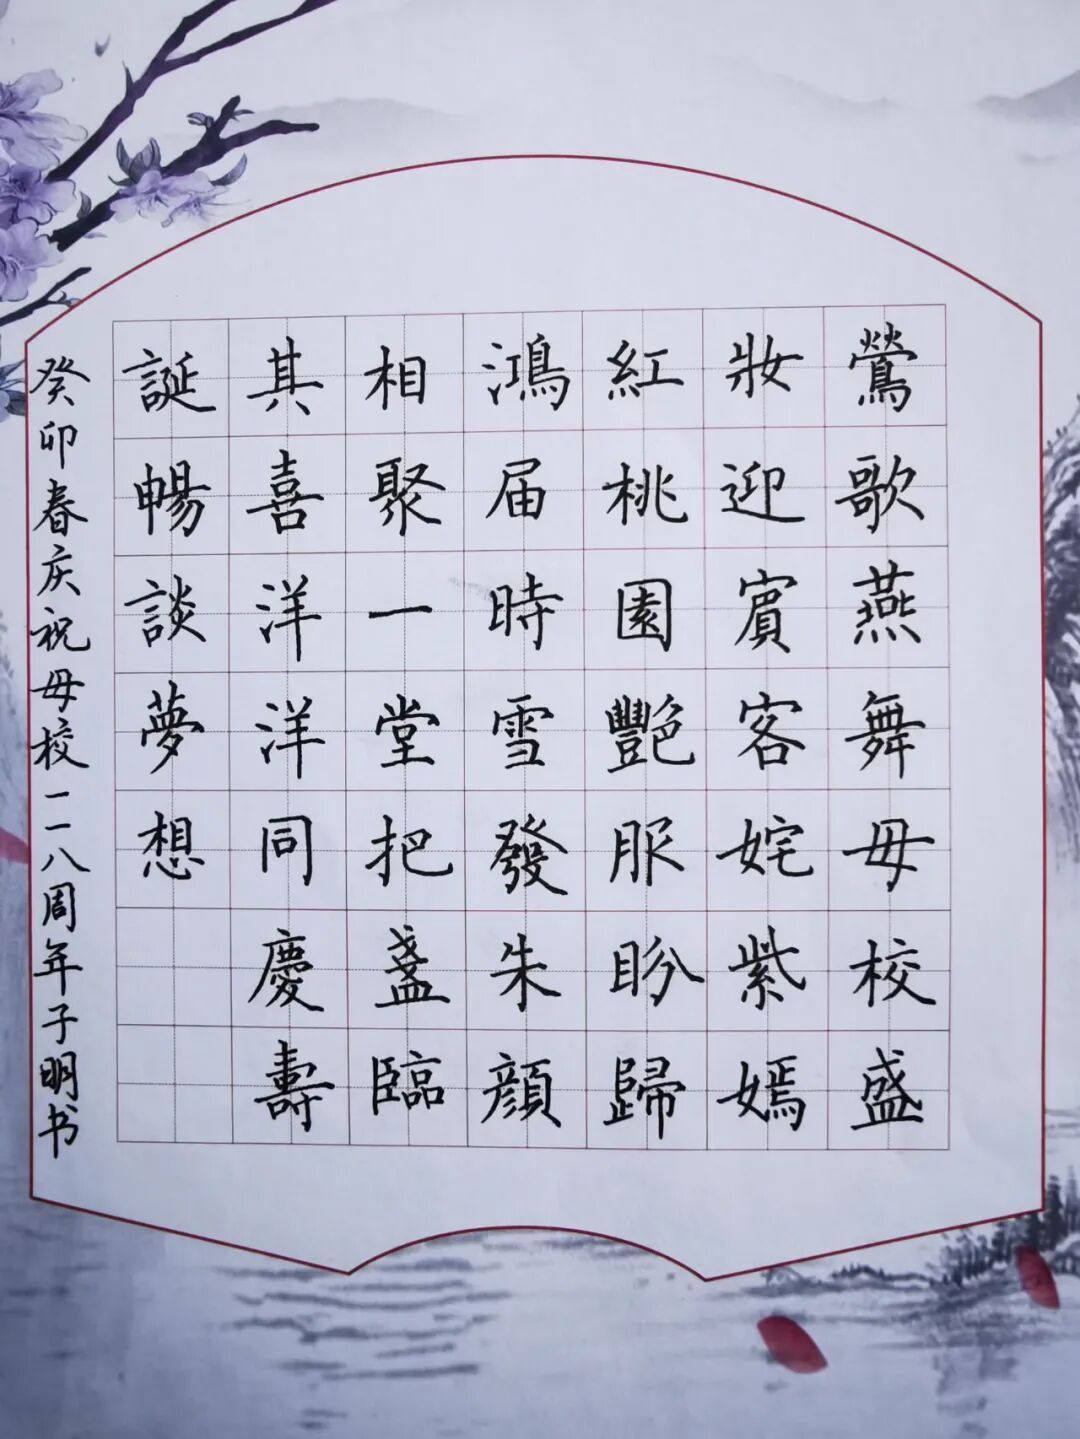 鶯歌燕舞母校盛
妝迎賓客姹紫嫣
紅桃園艷服盼歸
鴻届時雪發朱顏
相聚一堂把盞臨
其喜洋洋同慶壽
誕暢談夢想
癸卯春庆祝母校一一八周年子明书